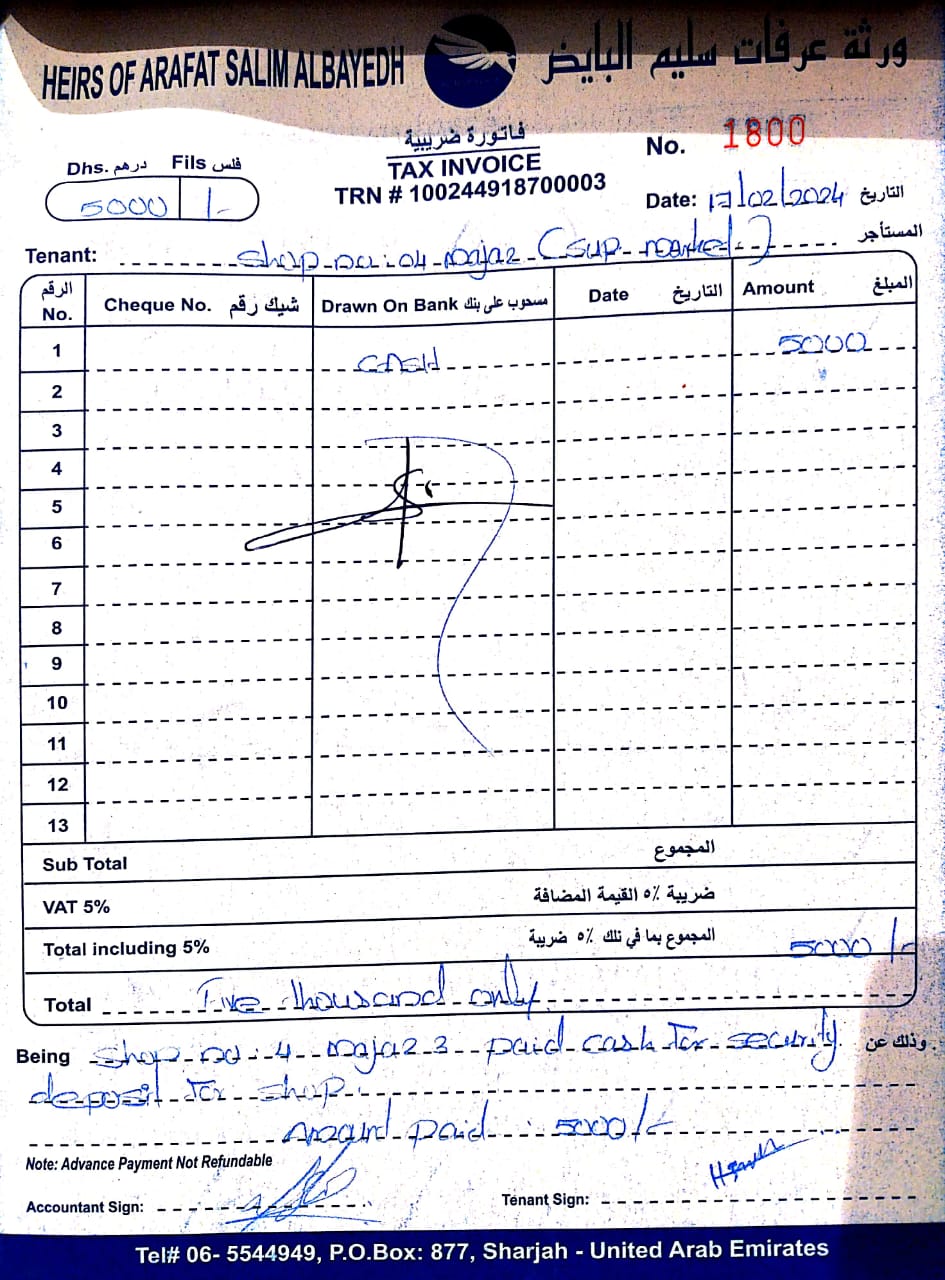 HEIRS OF ARAFAT SALIM ALBAYEDH ورثة عرفات سليم البايض
فاتورة ضريبية
TAX INVOICE
TRN # 100244918700003
No. 1800
Dhs. درهم Fils فلس
5000 /-
Date: 17/02/2024 التاريخ
Tenant: shop no: 04 majaz (sup market) المستأجر
الرقم No. Cheque No. شيك رقم Drawn On Bank مسحوب على بنك Date التاريخ Amount المبلغ
1 CASH 5000
2
3
4
5
6
7
8
9
10
11
12
13
Sub Total المجموع
VAT 5% ضريبة ٥٪ القيمة المضافة
Total including 5% المجموع بما في تلك ٥٪ ضريبة 5000/-
Total Five thousand only
Being shop no: 4 majaz 3 paid cash for security وذلك عن
deposit for shop.
paid : 5000/-
Note: Advance Payment Not Refundable
Accountant Sign:
Tenant Sign:
Tel# 06- 5544949, P.O.Box: 877, Sharjah - United Arab Emirates